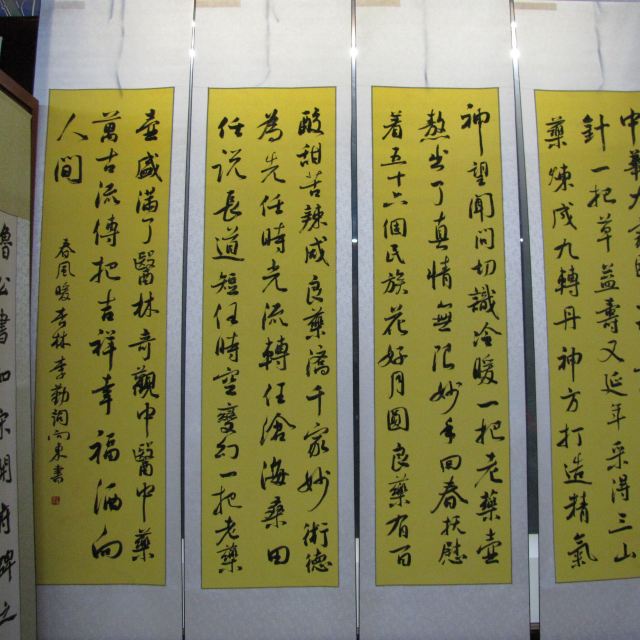 針一把草益壽又延年采得三山
藥煉成九轉丹神方打造精氣
神望聞問切識冷暖一把老藥壺
熬出了真情無限妙手回春扶慰
着五十六個民族花好月圓良藥有百
酸甜苦辣咸良藥濟千家妙術德
為先任時光流轉任滄海桑田
任說長道短任時空變幻一把老藥
壺盛滿了醫林奇觀中醫中藥
萬古流傳把吉祥幸福洒向
人間
春風暖杏林李勤詞向東書
魯公書如宋開府碑之